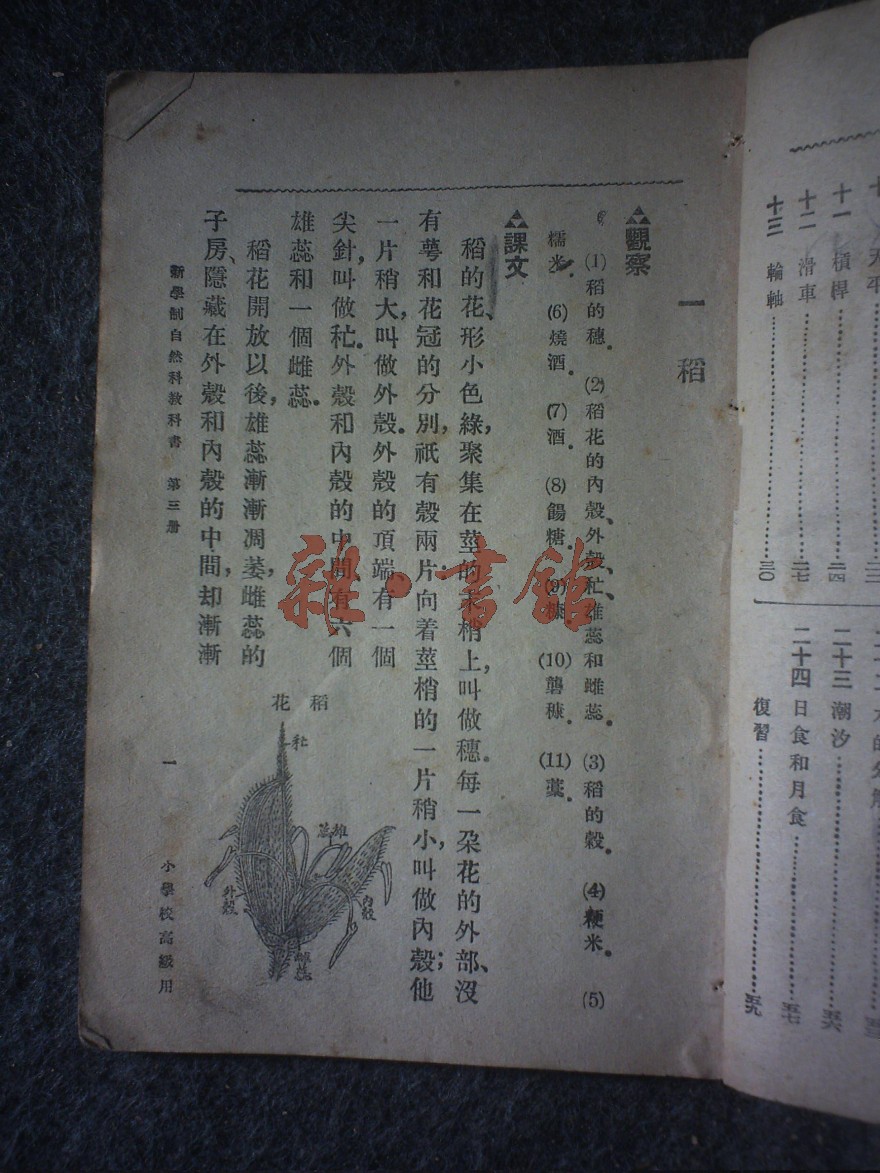 十 天平……二三
十一 槓桿……二四
十二 滑車……二七
十三 輪軸……三〇
二十三 潮汐……五六
二十四 日食和月食……五七
復習……五九
一 稻
觀察
(1)稻的穗。(2)稻花的內殼、外殼、芒、雄蕊和雌蕊。(3)稻的穀。(4)粳米。(5)
糯米。(6)燒酒。(7)酒。(8)餳糖。(9)糠。(10)礱糠。(11)藁。
課文
稻的花、形小色綠,聚集在莖的末梢上,叫做穗。每一朶花的外部、沒
有萼和花冠的分別,祇有殼兩片;向着莖梢的一片稍小,叫做內殼;他
一片稍大,叫做外殼。外殼的頂端、有一個
尖針,叫做芒。外殼和內殼的中間、有六個
雄蕊和一個雌蕊。
稻花開放以後,雄蕊漸漸凋萎,雌蕊的
子房、隱藏在外殼和內殼的中間,却漸漸
稻花
芒
雄蕊
內殼
外殼
雌蕊
新學制自然科教科書 第三册
一
小學校高級用
雜·書館